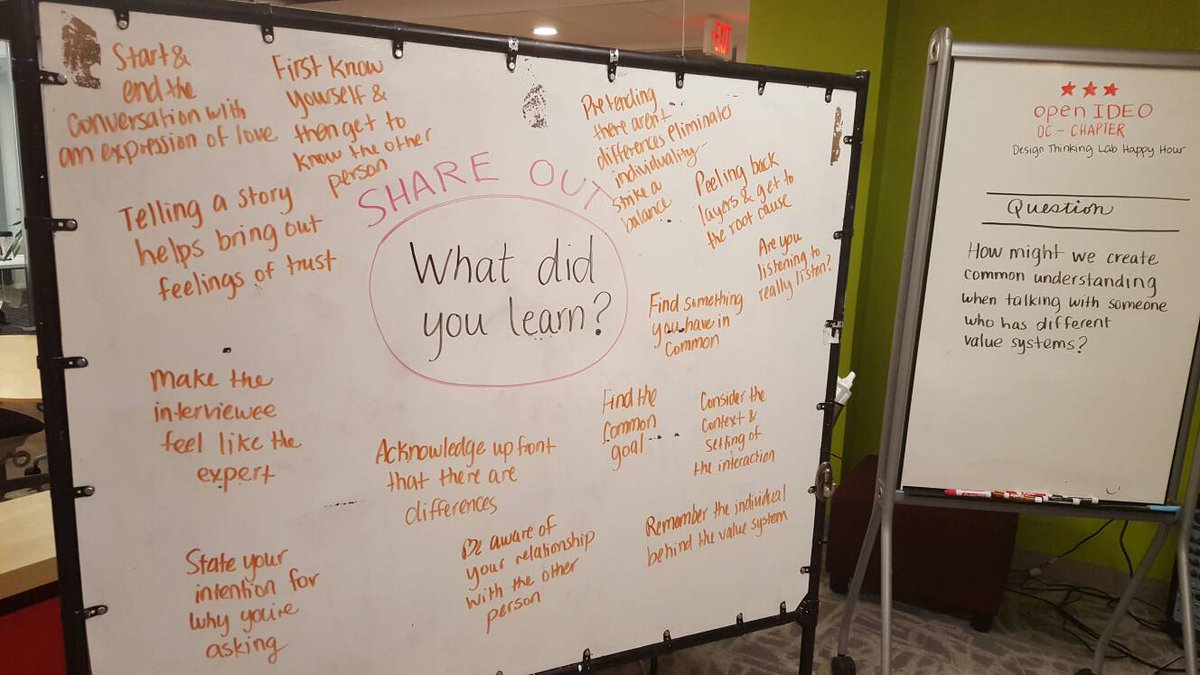 Start &
end the
conversation with
an expression of love
First know
yourself &
then get to
know the other
person
SHARE OUT
What did
you learn?
Pretending
there aren't
differences eliminates
individuality -
strike a
balance
Peeling back
layers & get to
the root cause
Are you
listening to
really listen?
Telling a story
helps bring out
feelings of trust
Find something
you have in
common
Make the
interviewee
feel like the
expert
Acknowledge up front
that there are
differences
Find the
common
goal
Consider the
context &
setting of
the interaction
State your
intention for
why you're
asking
Be aware of
your relationship
with the other
person
Remember the individual
behind the value system
EXIT
open IDEO
DC - CHAPTER
Design Thinking Lab Happy Hour
Question
How might we create
common understanding
when talking with someone
who has different
value systems?